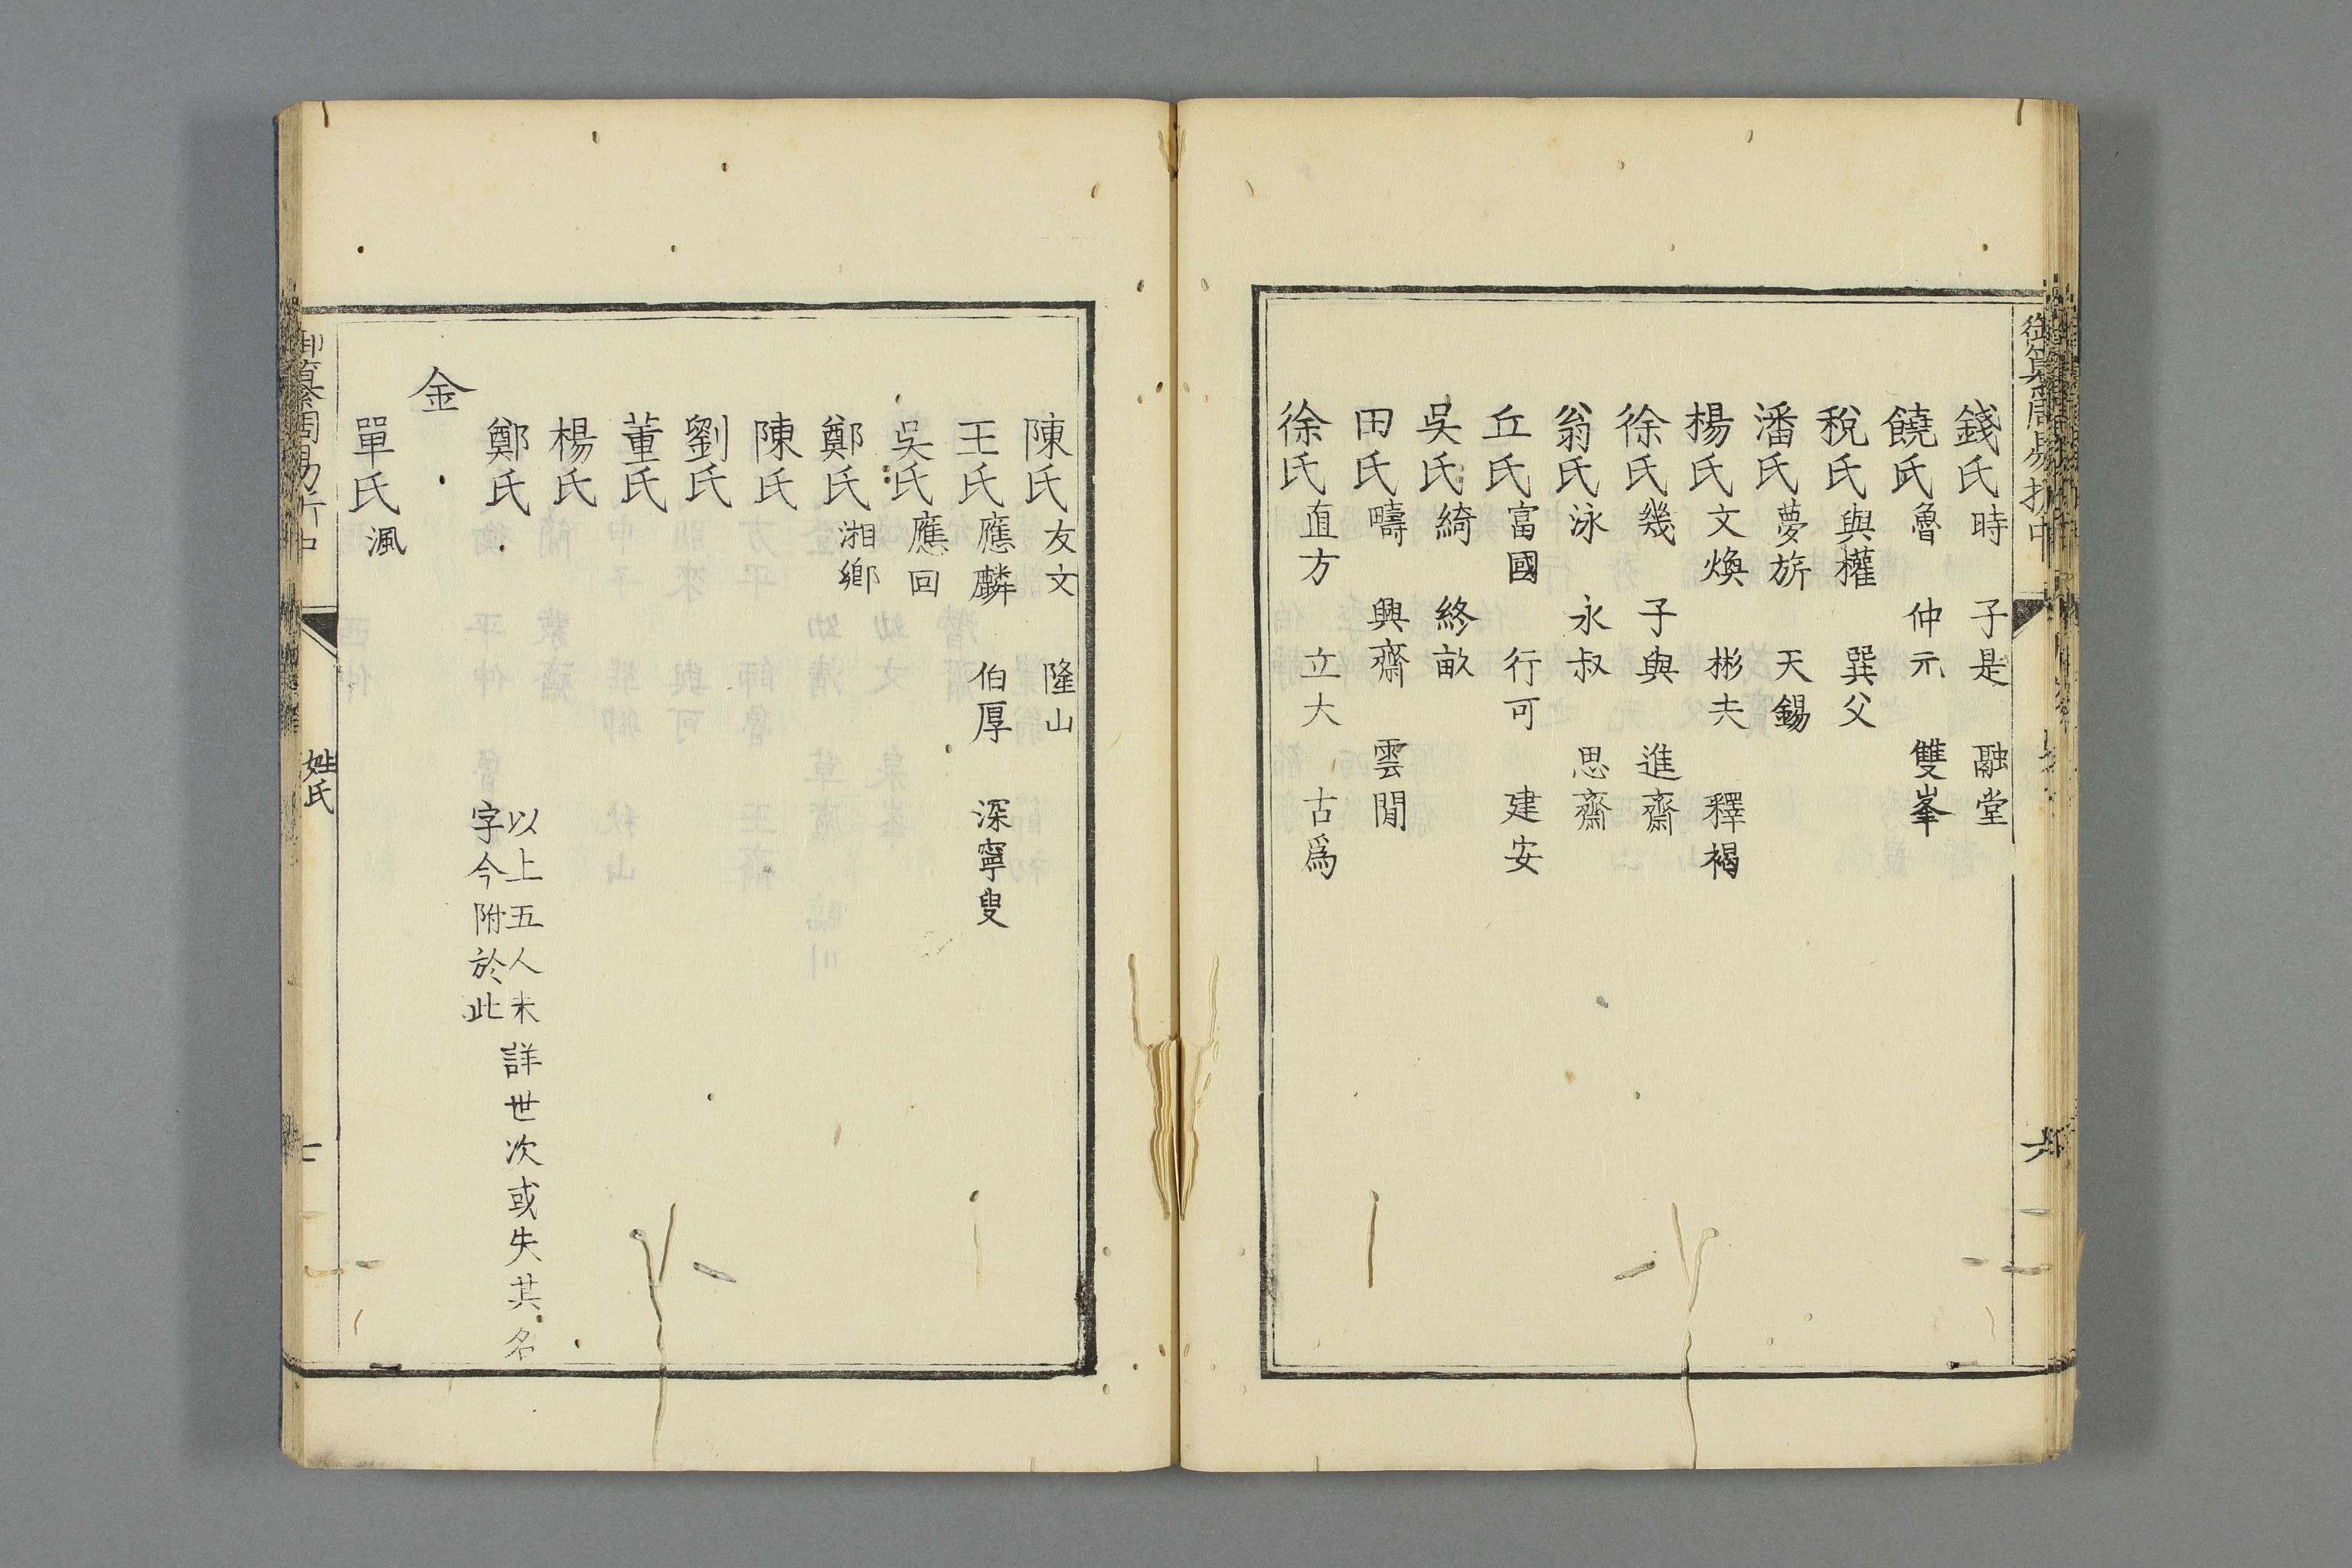 御纂周易折中
錢氏時 子是 融堂
饒氏魯 仲元 雙峯
稅氏與權 巽父
潘氏夢旂 天錫
楊氏文煥 彬夫 釋褐
徐氏幾 子與 進齋
翁氏泳 永叔 思齋
丘氏富國 行可 建安
吳氏綺 終畝
田氏疇 興齋 雲閒
徐氏直方 立大 古為
陳氏友文 隆山
王氏應麟 伯厚 深寧叟
吳氏應回
鄭氏湘鄉
陳氏
劉氏
董氏
楊氏
鄭氏 以上五人未詳世次或失其名
字今附於此
金
單氏渢
御纂周易折中 姓氏